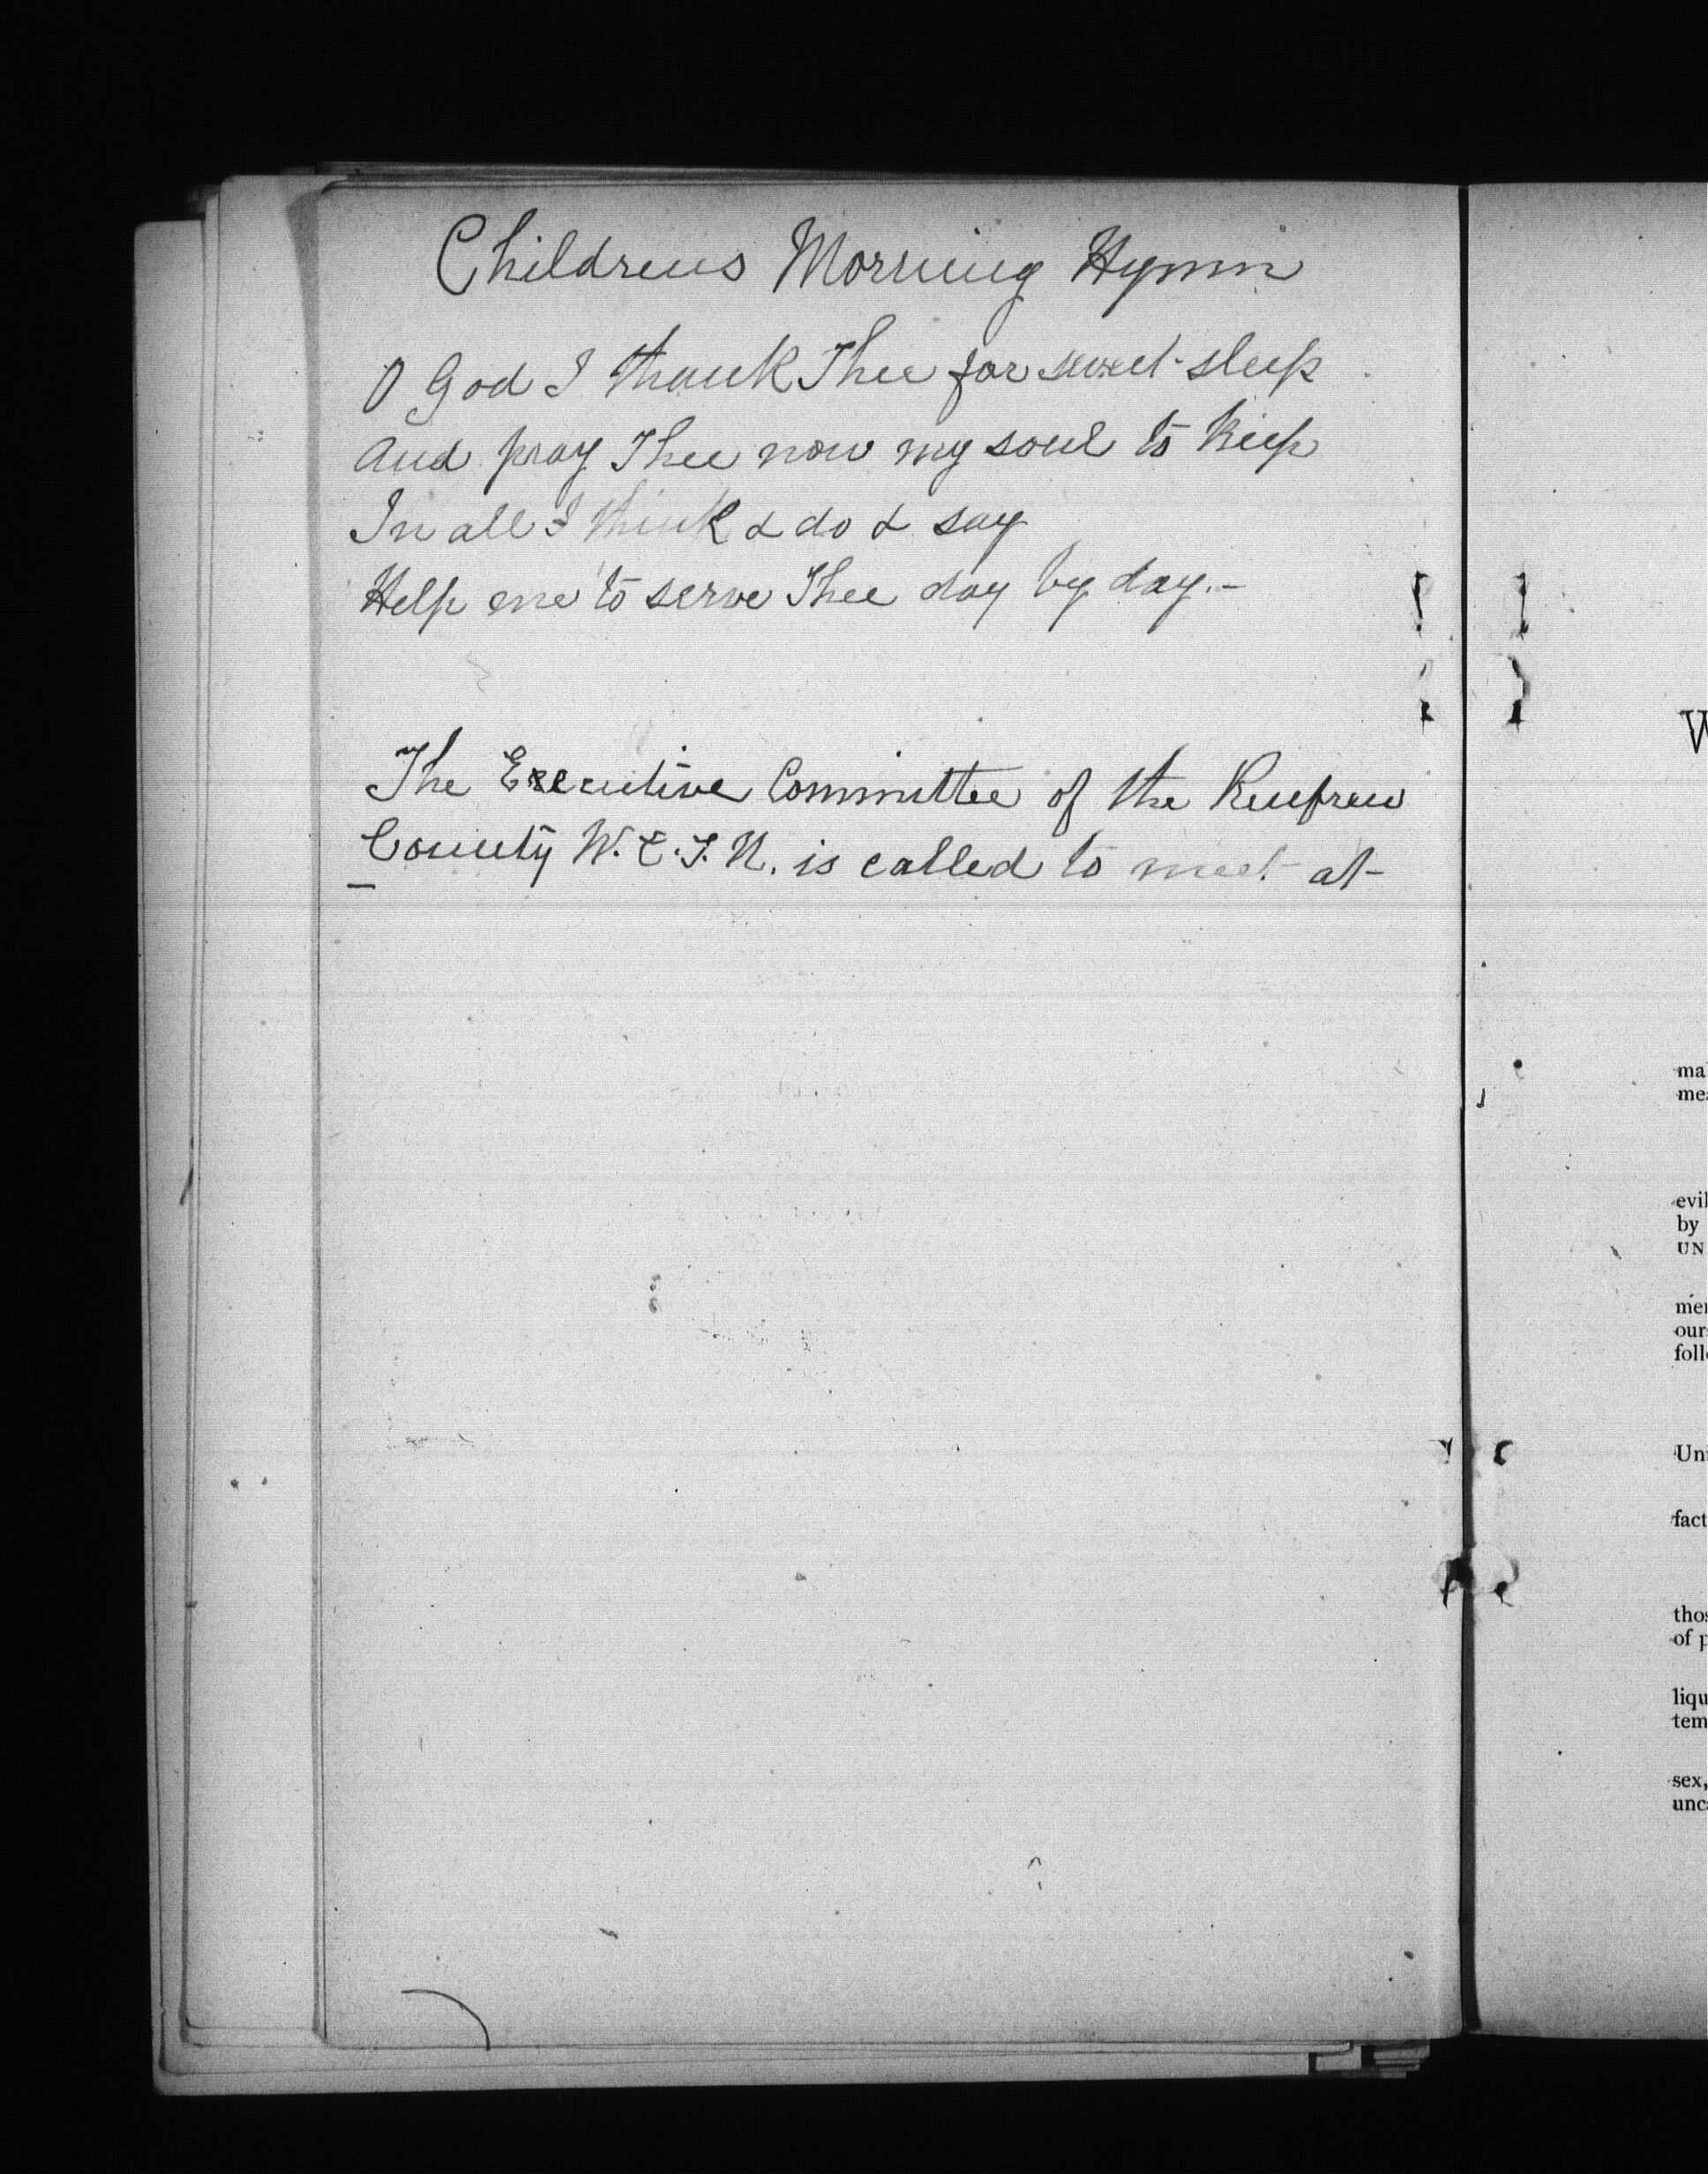 Childrens Morning Hymn
O God I thank Thee for sweet sleep
And pray Thee now my soul to keep
In all I think & do & say
Help me to serve Thee day by day.-
The Executive Committee of the Renfrew
County W.C.T.U. is called to meet at
W
ma
me
evil
by
UN
mer
our
foll
Un
fact
thos
of p
liqu
tem
sex,
unc